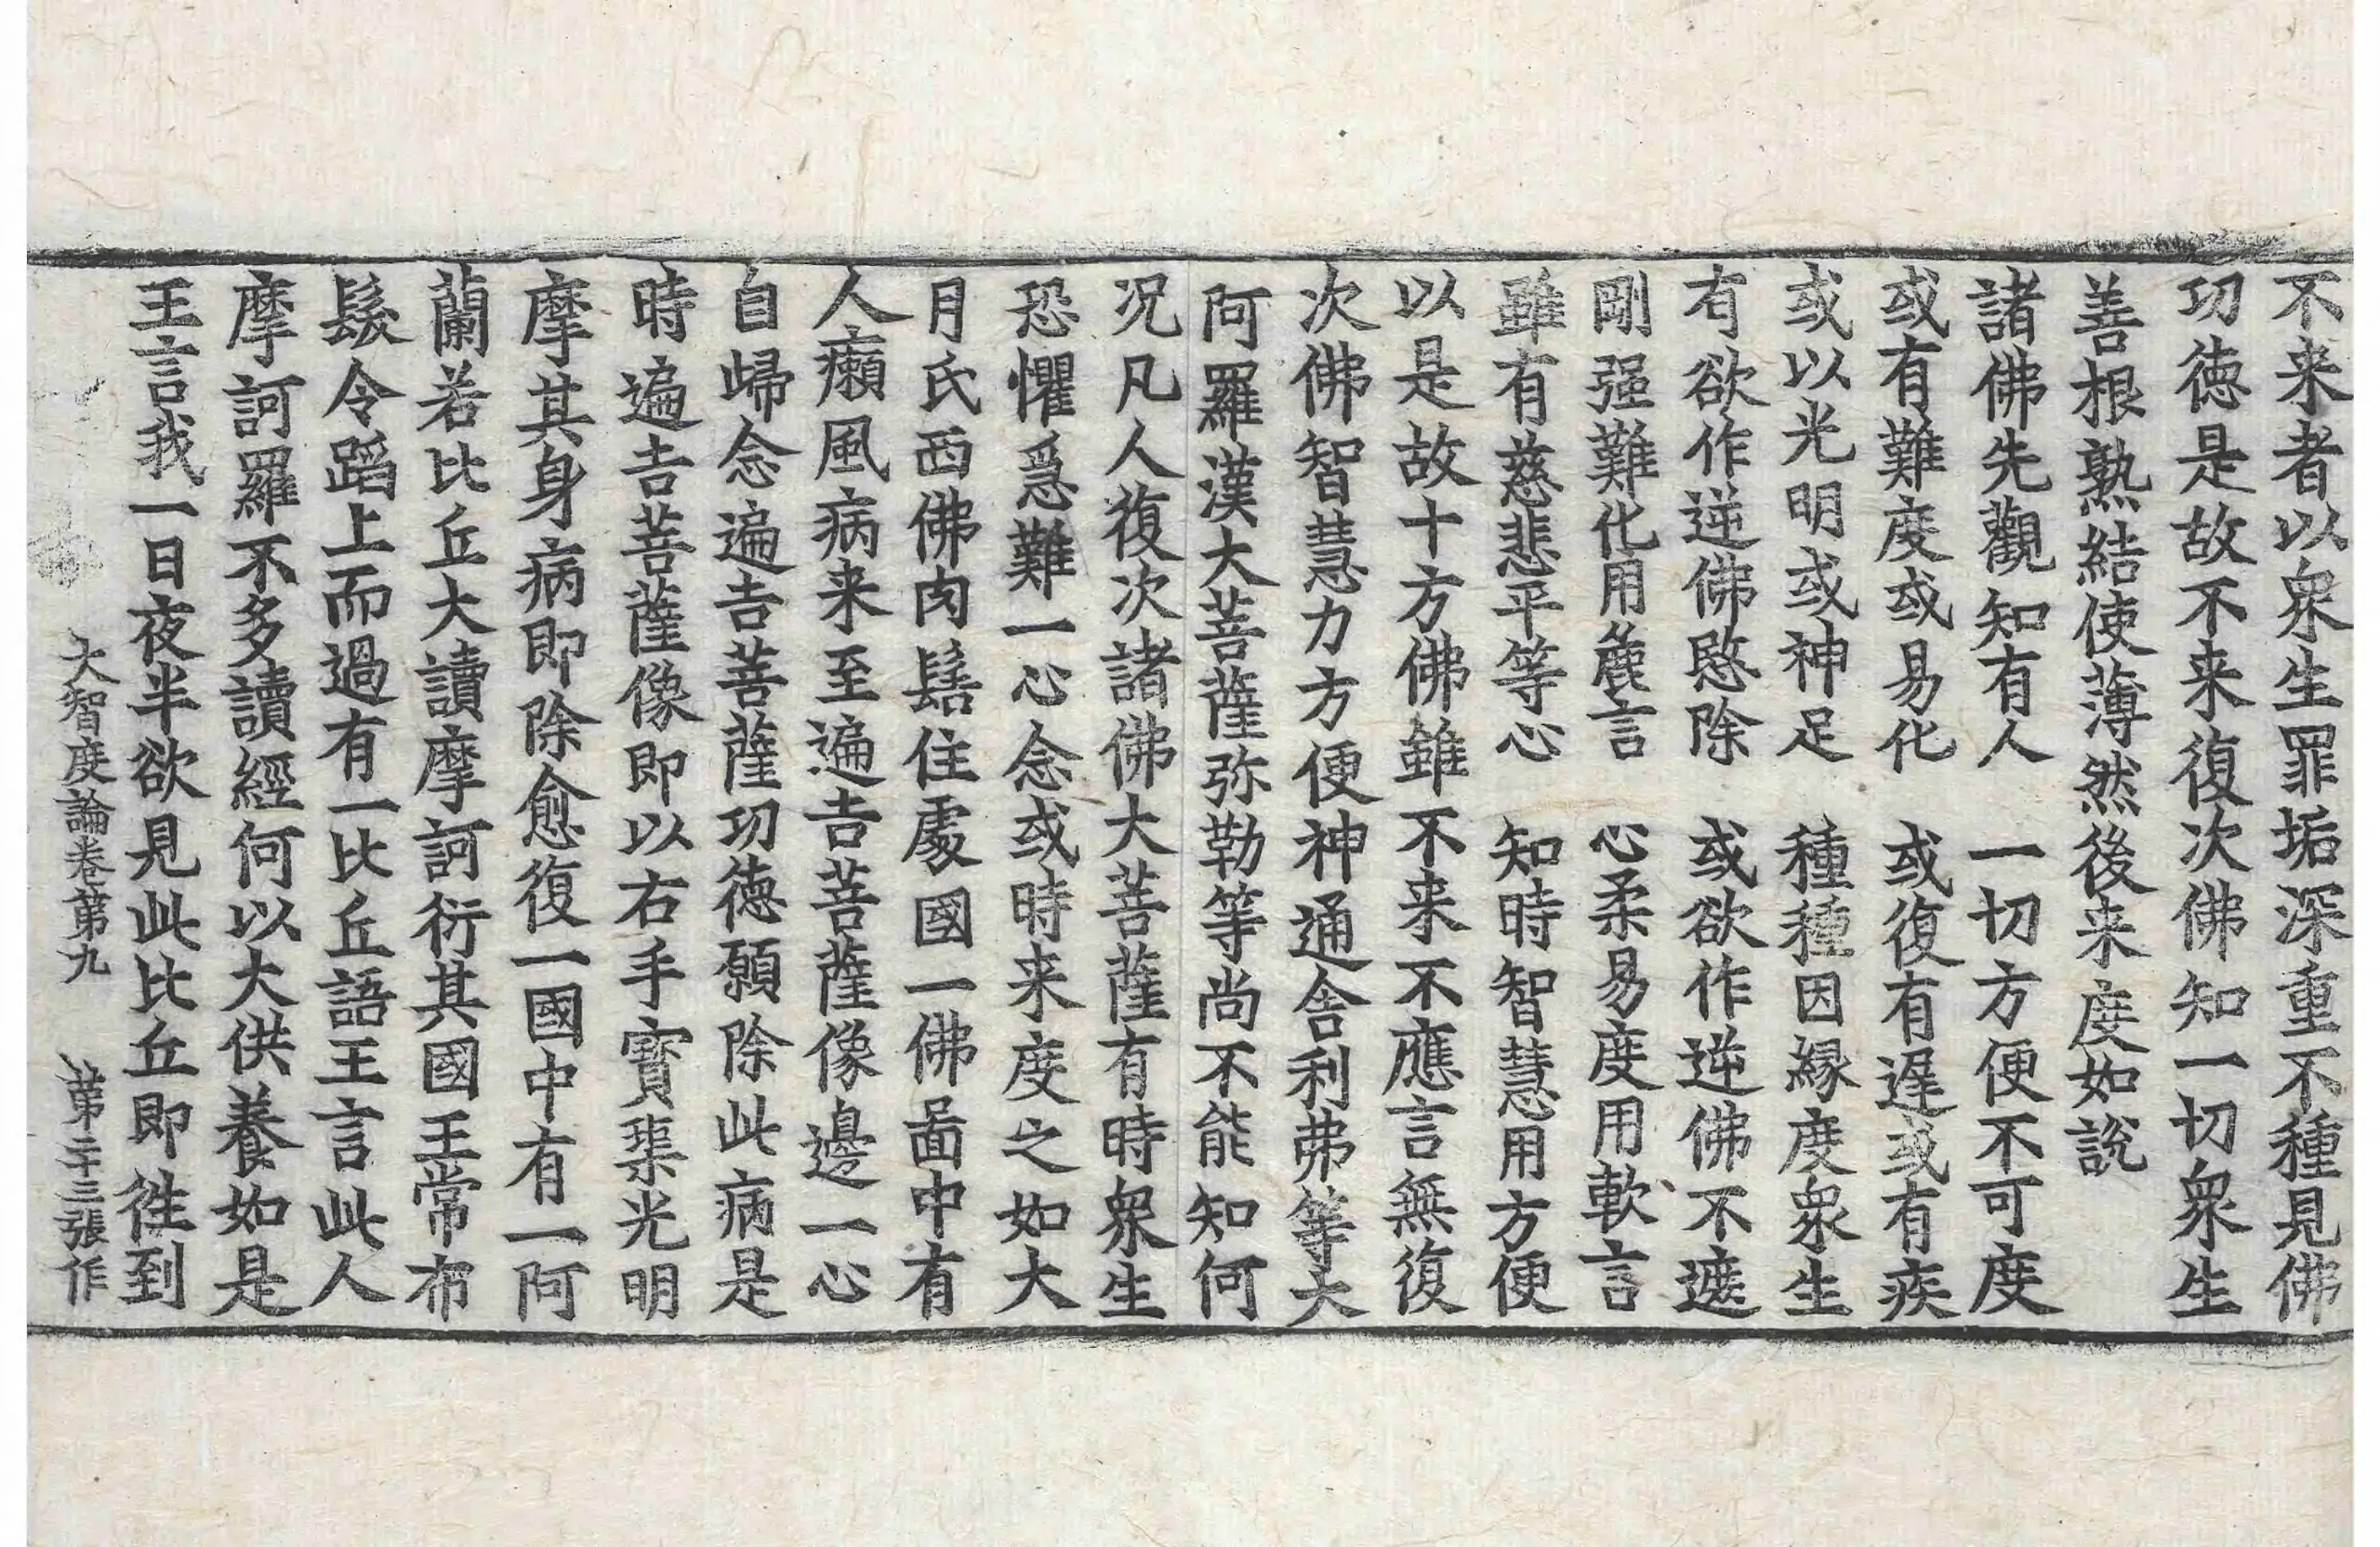 不来者以衆生罪垢深重不種見佛
功徳是故不来復次佛知一切衆生
善根熟結使薄然後来度如說
諸佛先觀知有人　一切方便不可度
或有難度或易化　或復有遅或有疾
或以光明或神足　種種因縁度衆生
有欲作逆佛愍除　或欲作逆佛不遮
剛强難化用麁言　心柔易度用軟言
雖有慈悲平等心　知時智慧用方便
以是故十方佛雖不来不應言無復
次佛智慧力方便神通舎利弗等大
阿羅漢大菩薩弥勒等尚不能知何
况凡人復次諸佛大菩薩有時衆生
恐懼急難一心念或時来度之如大
月氏西佛肉髻住處國一佛啚中有
人癩風病来至遍吉菩薩像邊一心
自歸念遍吉菩薩功徳願除此病是
時遍吉菩薩像即以右手寶渠光明
摩其身病即除愈復一國中有一阿
蘭若比丘大讀摩訶衍其國王常布
髮令蹈上而過有一比丘語王言此人
摩訶羅不多讀經何以大供養如是
王言我一日夜半欲見此比丘即徃到
大智度論卷第九　第二十三張作